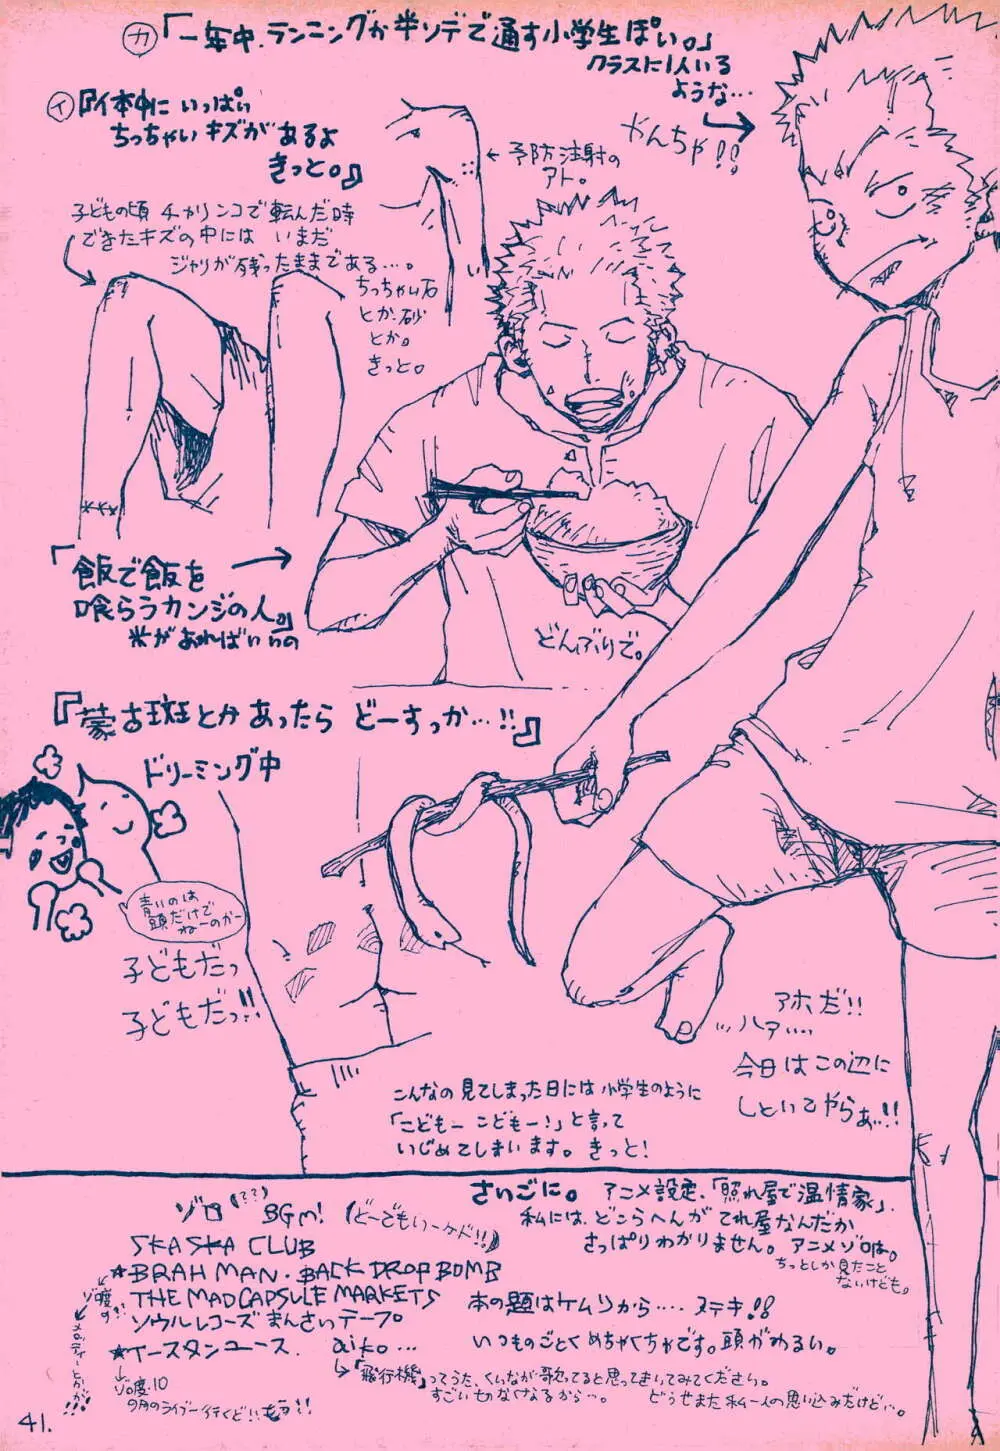 ㋕「一年中、ランニングか半ソデで通す小学生ぽい。」
クラスに1人いる
ような…
やんちゃ!!
㋑『体中に いっぱい
ちっちゃいキズがあるよ
きっと。』
← 予防注射の
アト。
子どもの頃 チャリンコで転んだ時
できたキズの中には いまだ
ジャリが残ったままである…。
ちっちゃい石
とか、砂
とか。
きっと。
「飯で飯を
喰らうカンジの人。」
米があればいいの
どんぶりで。
『蒙古斑とかあったら どーすっか…!!』
ドリーミング中
青いのは
頭だけで
ねーのかー
子どもだっ
子どもだっ!!
アホだ!!
…ハァ…
今日はこの辺に
しといてやらぁ!!
こんなの見てしまった日には小学生のように
「こどもー こどもー!」と言って
いじめてしまいます。きっと!
ゾロ(??) BGM! (どーでもいーケド!!)
SKA SKA CLUB
★BRAHMAN・BACK DROP BOMB
THE MAD CAPSULE MARKETS
ソウルレコーズまんさいテープ
★イースタンユース. aiko…
ゾロ度の
メロディーとかが!!
↓
ゾロ度・10
9月のライブ行くど!!
↳「飛行機」ってうた、くいなが歌ってると思ってきいてみてください。
すごい切なくなるから…。 どうせまた私一人の思い込みだけど…。
さいごに。 アニメ設定、「照れ屋で温情家」、
私には、どこらへんがてれ屋なんだか
さっぱりわかりません。アニメゾロは。
ちっとしか見たこと
ないけども。
本の題はケムリから…. ステキ!!
いつものごとくめちゃくちゃです。頭がわるい。
41.